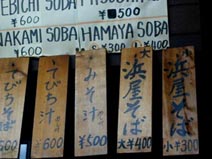 TEBICHI SOBA
¥600
¥500
NAKAMI SOBA
¥600
HAMAYA SOBA
S¥300
浜屋そば
小¥300
浜屋そば
大¥400
みそ汁
¥500
てびち汁
¥600
てびちそば